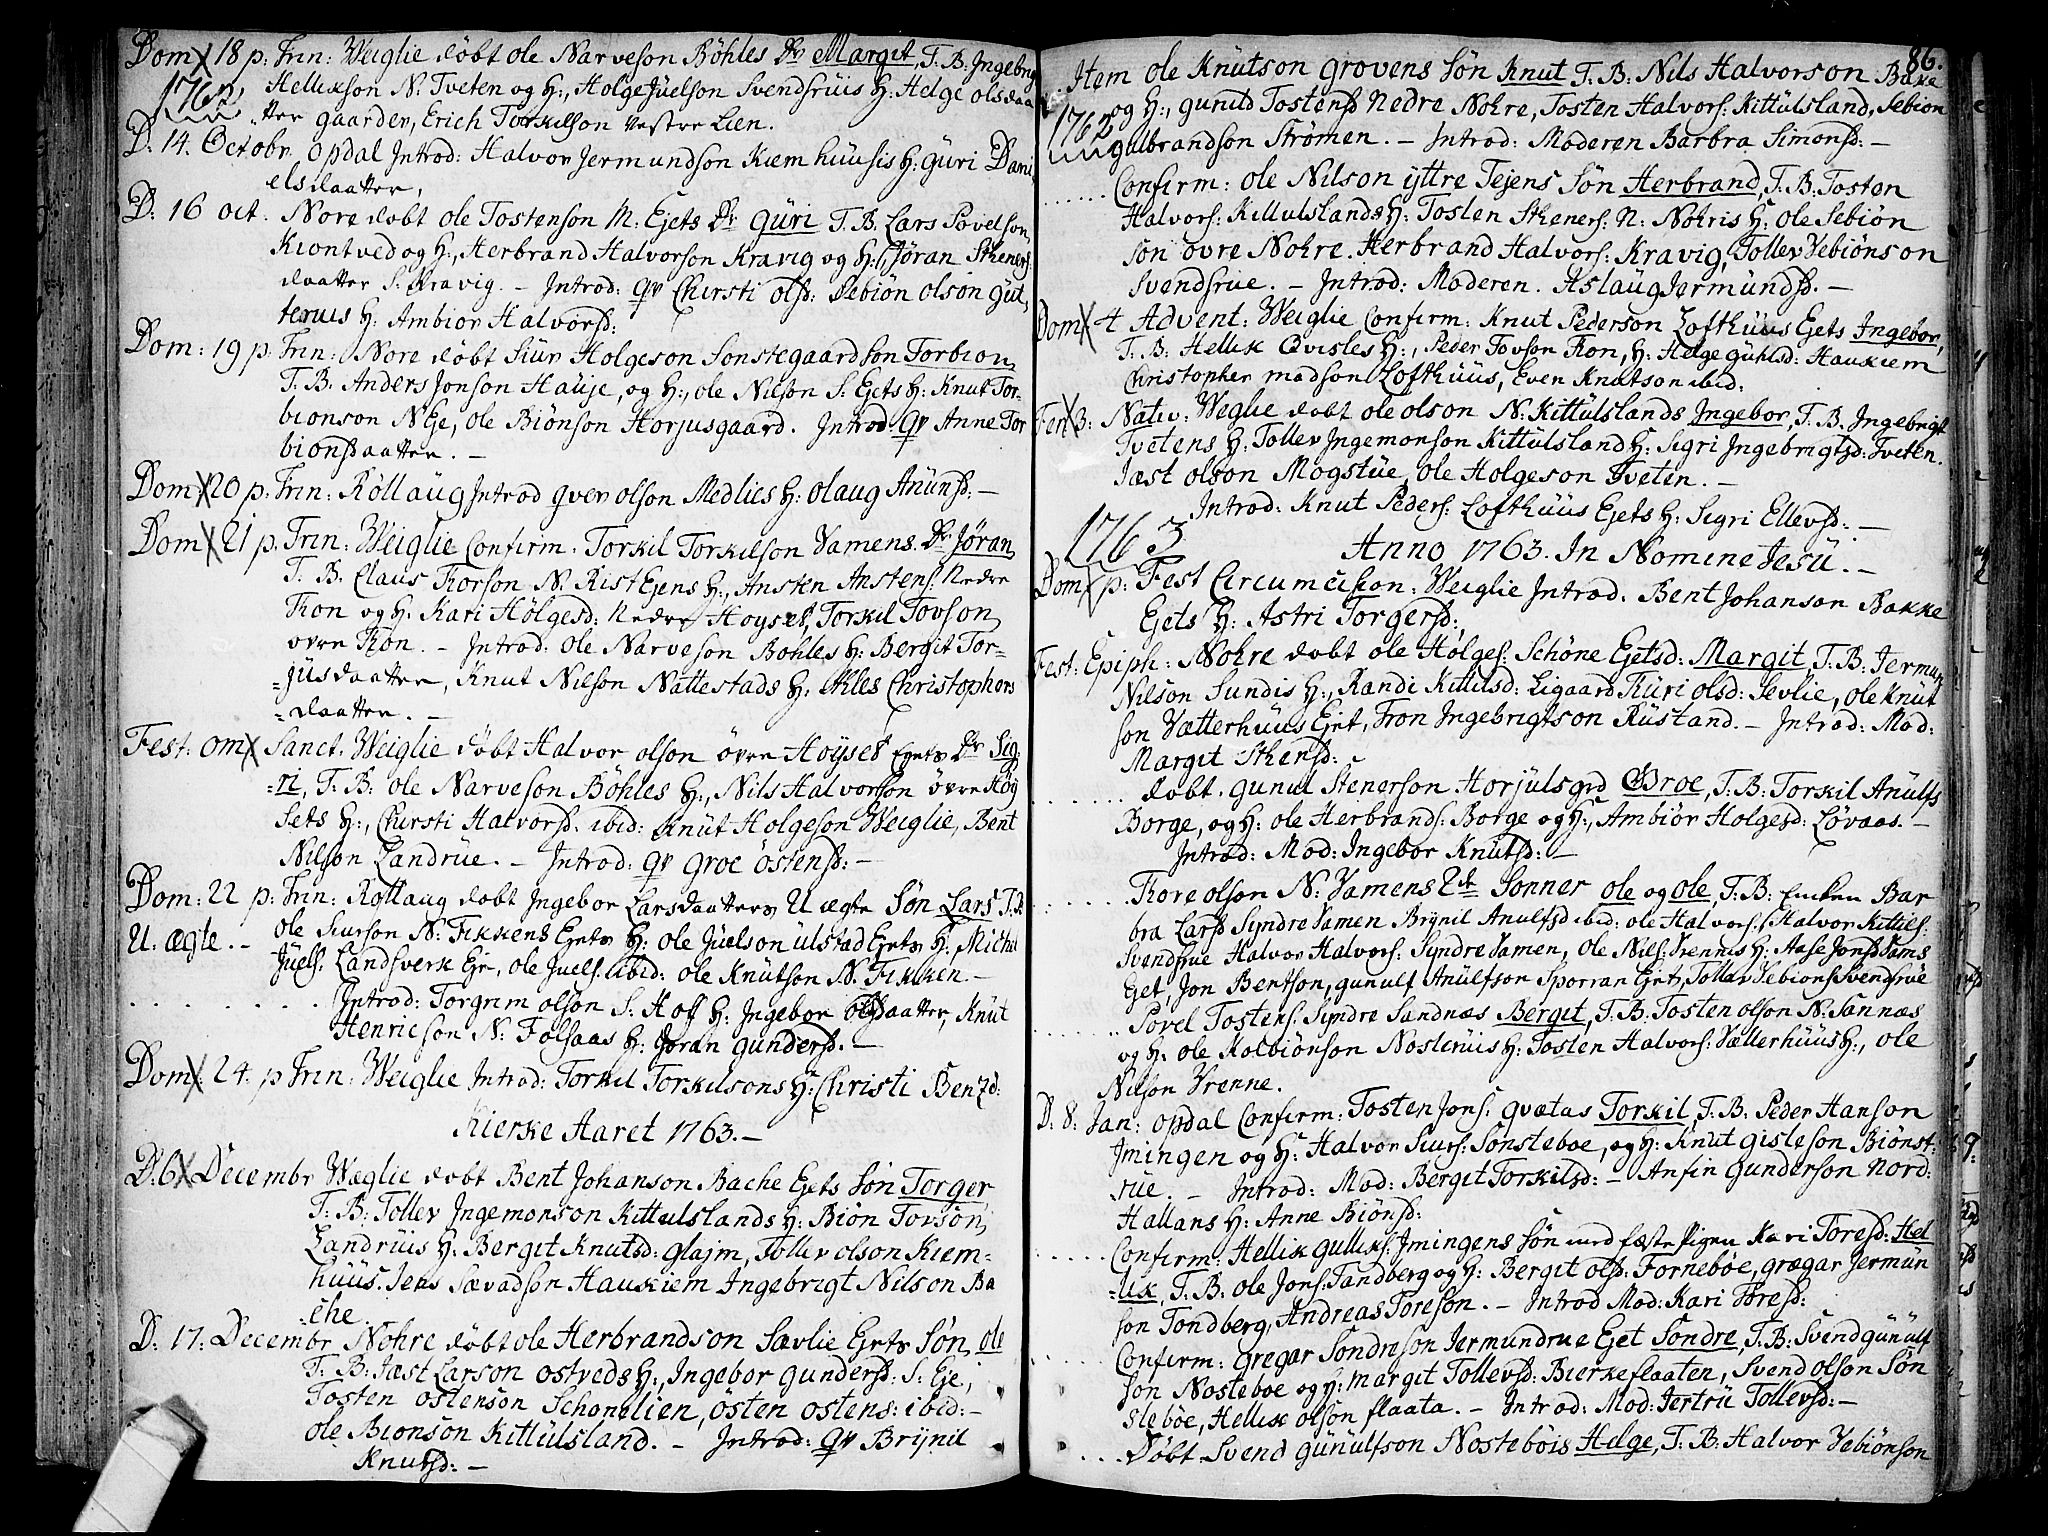 Dom 18 p. Trin: Weiglie döbt ole Narveson Böhles Dr Margit, T.B: Ingebrig
1762
Hellikson N. Tveten og H:, Holge Juelson Svendsruis H: Helge olsdaa
tter gaarden, Erich Torkilson Vestre Lien.
D: 14. Octobr. opdal Introd: Halvor Jermundson Kiemhuusis H: Guri Dani
elsdaatter,
D: 16 oct. Nore döbt ole Tostenson M: Ejets Dr Guri T.B. Lars Povelson,
Kiontved og H:, Herbrand Halvorson Kravig og H:, Jöran Stheners
daatter S. Kravig. – Introd: qv Chirsti olsd: Sebiön olson Gut,
teruis H: Ambior Halvorsd:
Dom: 19 p. Trin: Nore döbt Siur Holgeson Sonstegaard son Torbion,
T.B. Anders Jonson Hauje, og H:, ole Nilson S. Ejets H: Knut Tor-
bionson N Eje, ole Biönson Horjusgaard. Introd: qv Anne Tor
bionsdaatter. –
Dom 20 p. Trin: Röllaug Introd qver olson Medlies H: olaug Anunsd: –
Dom 21 p. Trin: Weiglie Confirm. Torkil Torkilson Vamens. Dr Jöran,
T.B. Claus Torson N. Rist Ejens H:, Ansten Anstens: Nedre
Kon og H. Kari Holgesd: Nedre Höyset, Torkil Tovson,
ovre Kon. – Introd: ole Narveson Bohles H: Bergit Tor-
jusdaatter, Knut Nilson Nattestads H: Ahles Christophers
daatter. –
Fest: om Sanct. Weiglie döbt Halvor olson övre Höyset Ejets Dr Sig
ri, T.B: ole Narveson Böhles H:, Nils Halvorson övre Höy
sets H:, Chirsti Halvorsd. ibid: Knut Holgeson Weiglie, Bent
Nilson Landrue. – Introd: qv Groe östensd: –
Dom: 22 p. Trin: Rollaug döbt Ingebor Larsdaatters U ægte Sön Lars T.B.
U. ægte. – ole Siurson N. Fikkens Ejets H: ole Juelson Ulstad Ejets H: Michel
Juels. Landsverk Eje, ole Juels. ibid: ole Knutson N. Fikken. –
. . . . . Introd: Torgrim olson S. Hoff H: Ingebor olsdaatter, Knut
Henricson N. Folsaas H: Joran Gundersd. –
Dom: 24. p Trin: Weiglie Introd: Torkil Torkilsons H: Christi Bentzd:
Kierke Aaret 1763. –
D. 6 Decembr Wæglie döbt Bent Johanson Bache Ejets Sön Torger,
T.B: Tollev Ingemonson Kittulslands H: Biön Torson,
Landruis H: Bergit Knutsd: Glajm, Tollev olson Kiem-
huus. Jens Sævadson Haukiem Ingebrigt Nilson Ba
che.
D. 17: Decembr Nohre döbt ole Herbrandson Sævlie Ejets Sön, ole
T.B: Jæst Larson Ostveds H:, Ingebor Gundersd: S. Eje,
Tosten Ostenson Schonelien, östen ostens: ibid: –
ole Bionson Kittulsland. – Introd: qv Brijnil
Knutsd: –
86.
Item ole Knutson Grovens Sön Knut T.B: Nils Halvorson Bake
1762
og H:, Gunild Tostensd Nedre Nohre, Tosten Halvors: Kittulsland, Sebion
Gulbrandson Strömen. – Introd: Moderen Barbra Simonsd: –
. . . . . Confirm: ole Nilson ijttre Tejens Sön Herbrand, T.B: Tosten
Halvors: Kittulslands H: Tosten Stheners: N: Nohris H: ole Sebiön
son övre Nohre. Herbrand Halvors: Kravig, Tollev Vebiönson
Svendsrue. – Introd: Moderen. Aslaug Jermundsd. –
Dom 4 Advent: Weiglie Confirm: Knut Pederson Lofthuus Ejets Ingebor,
T.B: Hellik Qvisles H:, Peder Tovson Kon, H: Helge Guhlsd: Haukiem
Christopher Madson Lofthuus, Even Knutson ibid:
Fer 3: Nativ: Weglie döbt ole olson N: Kittulslands Ingebor, T.B. Ingebrigt
Tvetens H: Tollev Ingemonson Kittulsland H: Sigri Ingebrigtsd: Tveten.
Jæst olson Mogstue, ole Holgeson Tveten. –
Introd: Knut Peders: Lofthuus Ejets H: Sigri Ellevsd: –
1763
Anno 1763. In Nomine Jesu. –
Dom p: Fest Circumcision: Weiglie Introd. Bent Johanson Bakke
Ejets H: Astri Torgersd:
Fest: Epiph: Nohre döbt ole Holges: Schöne Ejets d: Margit, T.B: Jermun
Nilson Sundis H:, Randi Kittilsd: Ligaard Turi olsd: Sevlie, ole Knut
son Vætterhuus Ejet, Tron Ingebrigtson Rustand. – Introd: Mod:
Margit Sthensd:
. . . . . döbt. Gunul Stenerson Horjulsgrd Groe, T.B: Torkil Anulfs
Borge, og H: ole Herbrands: Borge og H:, Ambiör Holgesd: Lövaas. –
Introd: Mod: Ingebor Knutsd: –
. . . . . Tore olson N: Vamens 2de Sönner ole og ole, T.B: Enken Bar
bra Larsd Syndre Vamen Brynil Anulfsd ibid: ole Halvors: Halvor Kittils:
Svendsrue Halvor Halvors: Syndre Vamen, ole Nils: Vrennis H: Aase Jonsd Vams
Ejet, Jon Bentson, Gunulf Anulfson Sporran Ejet, Tollev Vebions Svendsrue
. . . . . Povel Tostens: Syndre Sandnæs Bergit, T.B: Tosten olson N: Sannæs
og H: ole Kolbiönson Nosteruis H: Tosten Halvors: Vætterhuus H:, ole
Nilson Vrenne.
D: 8: Jan: opdal Confirm: Tosten Jons: Qvætas Torkil, T.B: Peder Hanson
Jmingen og H: Halvor Siurs: Sönsteboe, og H: Knut Gisleson Biönst-
rue. – Introd: Mod: Bergit Torkilsd: – Anfin Gunderson Nord:
Hallans H: Anne Biönsd:
. . . . . Confirm: Hellik Gulliks: Jmingens Sön med fæste Pigen Kari Toresd: Hel
lik, T.B: ole Jons: Tandberg og H: Bergit olsd: Forneböe, Grægar Jermun
son Tondberg, Andreas Toreson. – Introd Mod: Kari Toresd:
. . . . . Confirm: Gregar Sondreson Jermundrue Ejet Sondre, T.B: Svend Gunulf
son Nosteboe og H: Margit Tollevsd: Bierkeflaaten, Svend olson Sön
steböe, Hellik olson flaata. – Introd: Mod: Jertru Tollevsd: –
. . . . Döbt Svend Gunulfson Nostebois Helge, T.B: Halvor Vebiönson